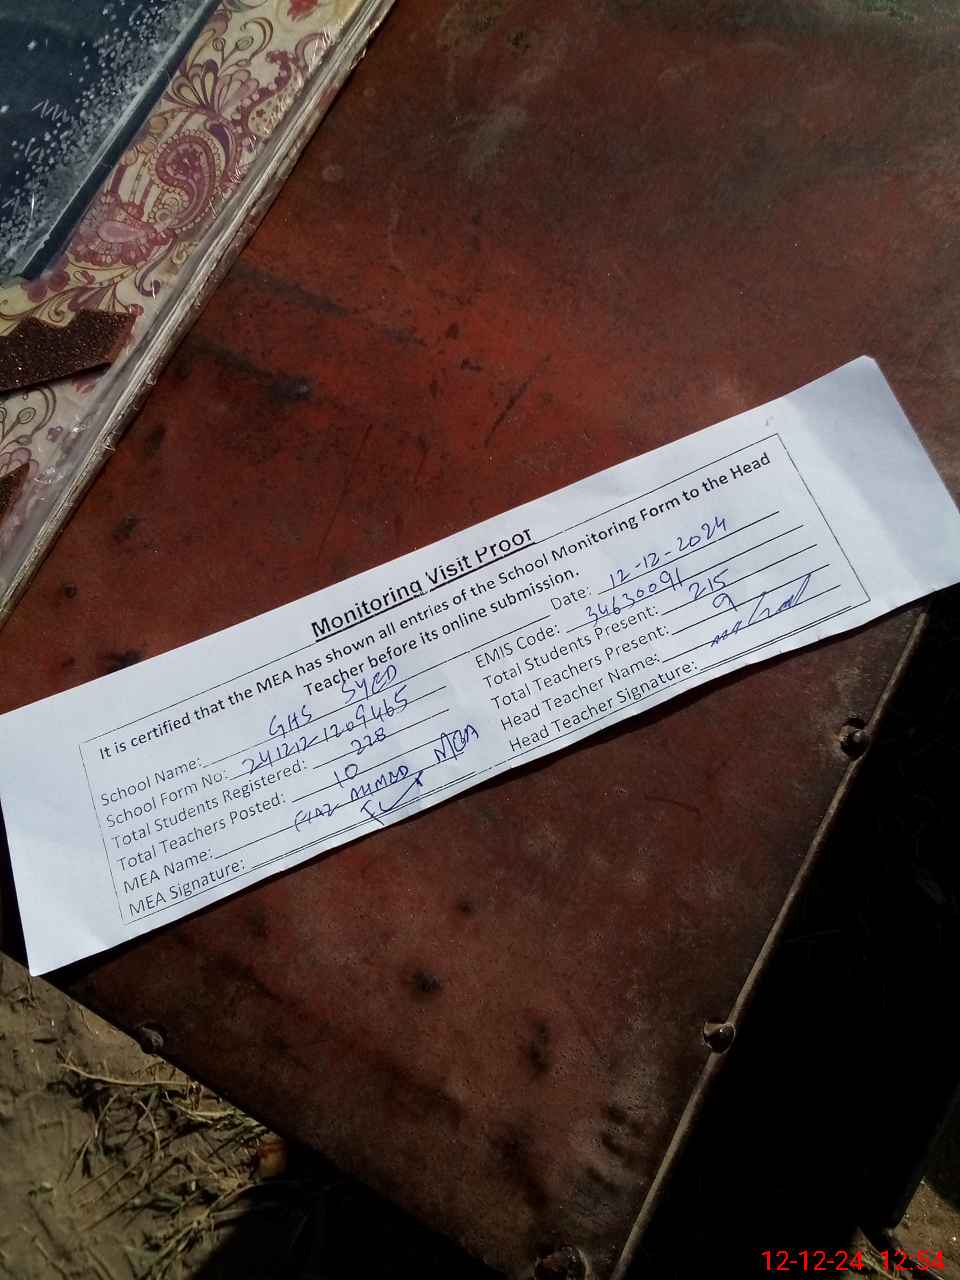 Monitoring Visit Proof
It is certified that the MEA has shown all entries of the School Monitoring Form to the Head
Teacher before its online submission.
School Name: GHS SYED
Date: 12-12-2024
School Form No: 241212-1209465
EMIS Code: 34630091
Total Students Registered: 228
Total Students Present: 215
Total Teachers Posted: 10
Total Teachers Present: 9
MEA Name: AHMAD MEA
Head Teacher Name:
MEA Signature:
Head Teacher Signature:
12-12-24 12:54